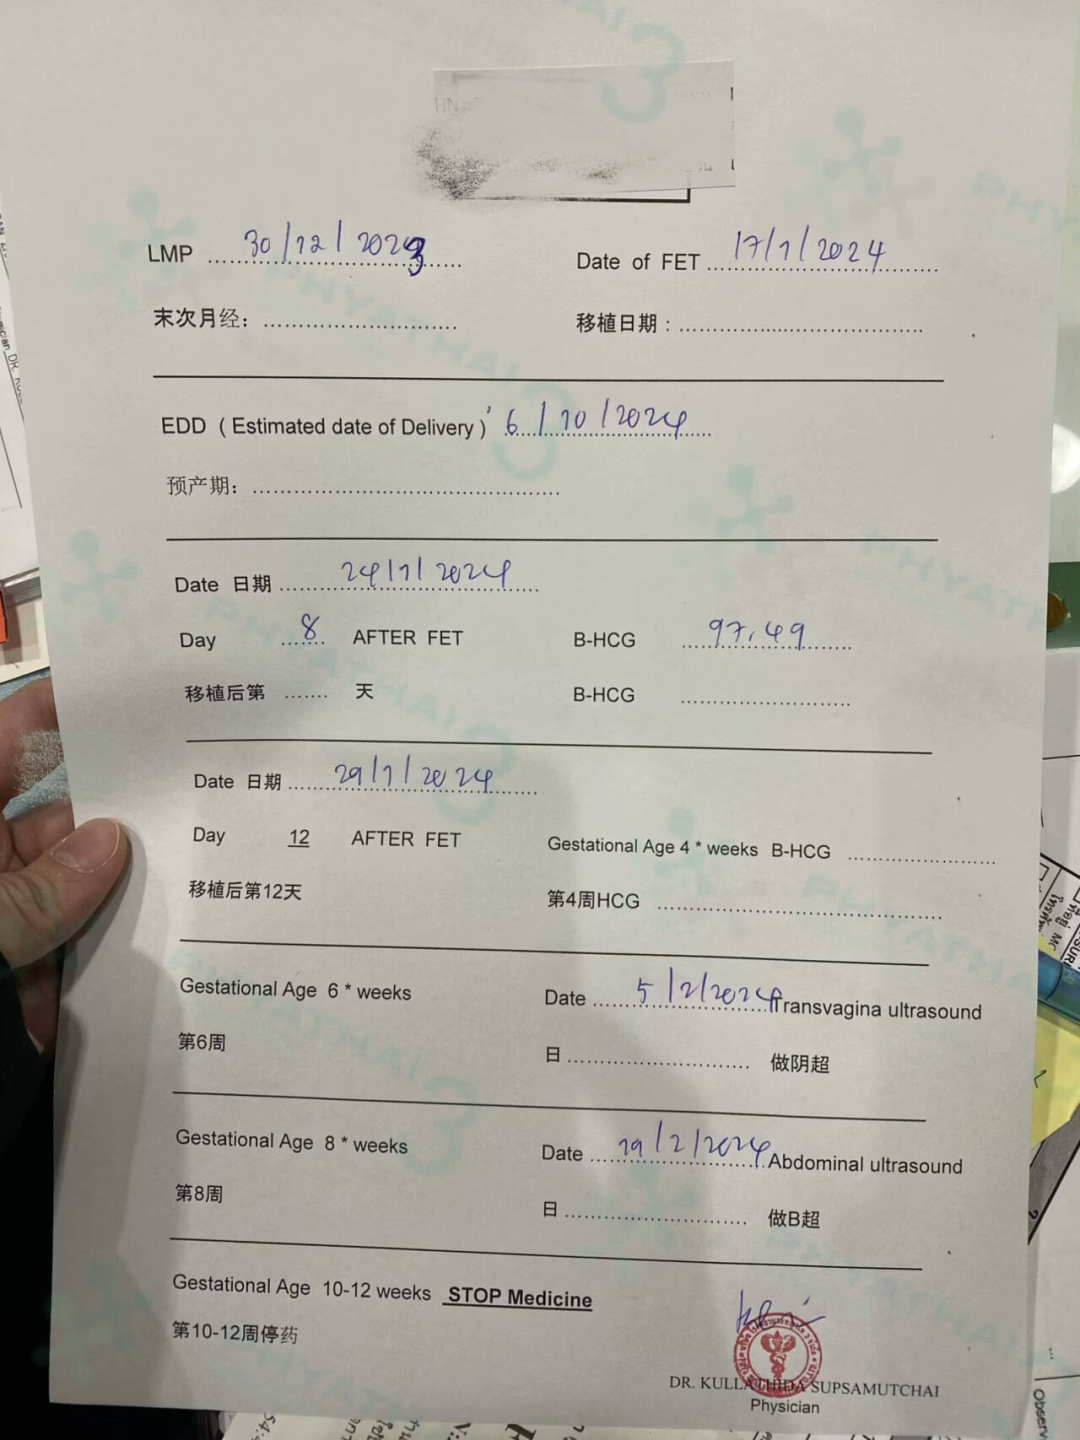 LMP 30/12/2023 Date of FET 17/1/2024
末次月经: 移植日期:
EDD ( Estimated date of Delivery ) 6/10/2024
预产期:
Date 日期 24/1/2024
Day 8 AFTER FET B-HCG 97.49
移植后第 天 B-HCG
Date 日期 29/1/2024
Day 12 AFTER FET Gestational Age 4 * weeks B-HCG
移植后第12天 第4周HCG
Gestational Age 6 * weeks Date 5/2/2024 Transvagina ultrasound
第6周 日 做阴超
Gestational Age 8 * weeks Date 19/2/2024 Abdominal ultrasound
第8周 日 做B超
Gestational Age 10-12 weeks STOP Medicine
第10-12周停药
DR. KULLATHIDA SUPSAMUTCHAI
Physician